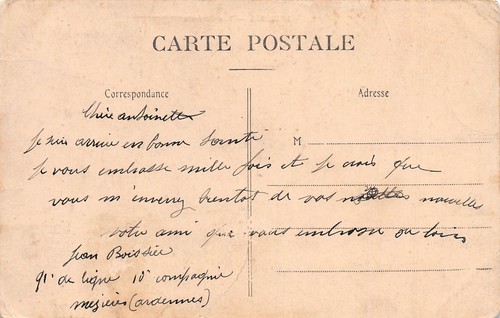 CARTE POSTALE
Correspondance
Adresse
Chère antoinette
je suis arrivé en bonne santé
M
je vous embrasse mille fois et je crois que
vous m'enverez bientot de vos nouvelles
votre ami que vous embrasse de loin
Jean Boissier
91e de ligne 10e compagnie
mezières (ardennes)